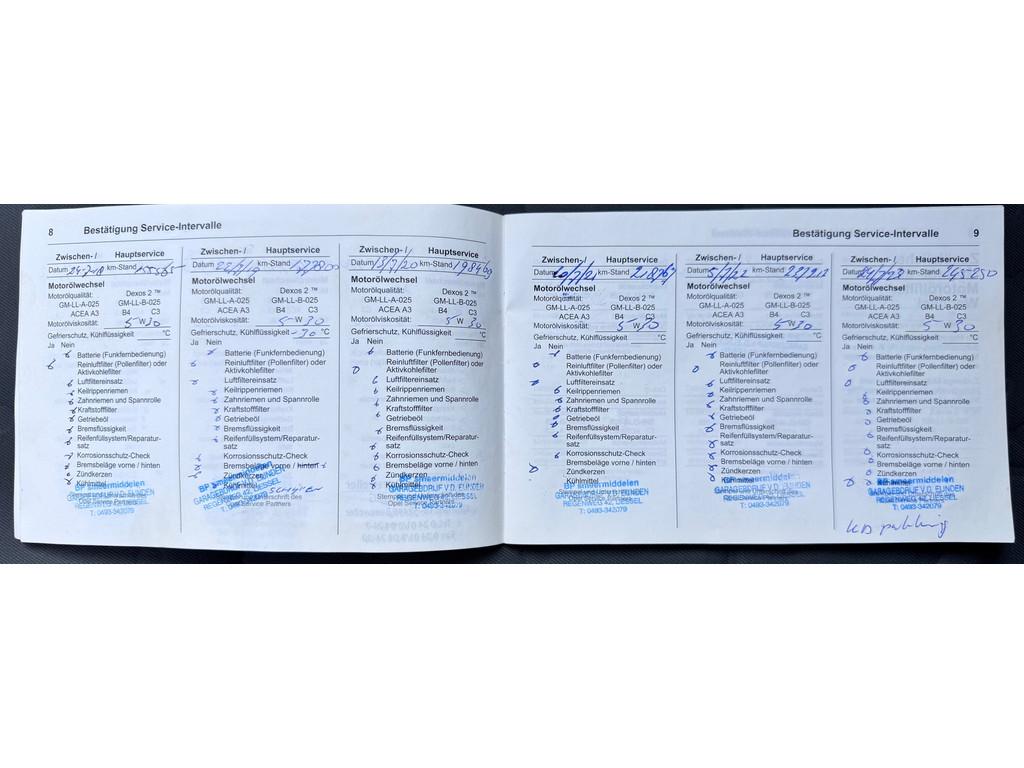 8 Bestätigung Service-Intervalle
Zwischen- / Hauptservice
Datum km-Stand
Motorölwechsel
Motorölqualität: Dexos 2 ™
GM-LL-A-025 GM-LL-B-025
ACEA A3 B4 C3
Motorölviskosität: 5 W 30
Gefrierschutz, Kühlflüssigkeit °C
Ja Nein
Batterie (Funkfernbedienung)
Reinluftfilter (Pollenfilter) oder
Aktivkohlefilter
Luftfiltereinsatz
Keilrippenriemen
Zahnriemen und Spannrolle
Kraftstofffilter
Getriebeöl
Bremsflüssigkeit
Reifenfüllsystem/Reparatur-
satz
Korrosionsschutz-Check
Bremsbeläge vorne / hinten
Zündkerzen
Kühlmittel
BP smeermiddelen
REGENWEG 42, DESSEL
T: 0493-342079
Zwischen- / Hauptservice
Datum km-Stand
Motorölwechsel
Motorölqualität: Dexos 2 ™
GM-LL-A-025 GM-LL-B-025
ACEA A3 B4 C3
Motorölviskosität: 5 W 30
Gefrierschutz, Kühlflüssigkeit -30 °C
Ja Nein
Batterie (Funkfernbedienung)
Reinluftfilter (Pollenfilter) oder
Aktivkohlefilter
Luftfiltereinsatz
Keilrippenriemen
Zahnriemen und Spannrolle
Kraftstofffilter
Getriebeöl
Bremsflüssigkeit
Reifenfüllsystem/Reparatur-
satz
Korrosionsschutz-Check
Bremsbeläge vorne / hinten
Zündkerzen
Kühlmittel
BP smeermiddelen
Zwischen- / Hauptservice
Datum 15/7/20 km-Stand 198469
Motorölwechsel
Motorölqualität: Dexos 2 ™
GM-LL-A-025 GM-LL-B-025
ACEA A3 B4 C3
Motorölviskosität: 5 W 30
Gefrierschutz, Kühlflüssigkeit °C
Ja Nein
Batterie (Funkfernbedienung)
Reinluftfilter (Pollenfilter) oder
Aktivkohlefilter
Luftfiltereinsatz
Keilrippenriemen
Zahnriemen und Spannrolle
Kraftstofffilter
Getriebeöl
Bremsflüssigkeit
Reifenfüllsystem/Reparatur-
satz
Korrosionsschutz-Check
Bremsbeläge vorne / hinten
Zündkerzen
Kühlmittel
BP smeermiddelen
T: 0493-342079
Bestätigung Service-Intervalle 9
Zwischen- / Hauptservice
Datum km-Stand
Motorölwechsel
Motorölqualität: Dexos 2 ™
GM-LL-A-025 GM-LL-B-025
ACEA A3 B4 C3
Motorölviskosität: 5 W
Gefrierschutz, Kühlflüssigkeit °C
Ja Nein
Batterie (Funkfernbedienung)
Reinluftfilter (Pollenfilter) oder
Aktivkohlefilter
Luftfiltereinsatz
Keilrippenriemen
Zahnriemen und Spannrolle
Kraftstofffilter
Getriebeöl
Bremsflüssigkeit
Reifenfüllsystem/Reparatur-
satz
Korrosionsschutz-Check
Bremsbeläge vorne / hinten
Zündkerzen
Kühlmittel
BP smeermiddelen
GARAGEBEDRIJF V.D. EIJNDEN
REGENWEG 42, DESSEL
T: 0493-342079
Zwischen- / Hauptservice
Datum 5/7/22 km-Stand
Motorölwechsel
Motorölqualität: Dexos 2 ™
GM-LL-A-025 GM-LL-B-025
ACEA A3 B4 C3
Motorölviskosität: 5 W 30
Gefrierschutz, Kühlflüssigkeit °C
Ja Nein
Batterie (Funkfernbedienung)
Reinluftfilter (Pollenfilter) oder
Aktivkohlefilter
Luftfiltereinsatz
Keilrippenriemen
Zahnriemen und Spannrolle
Kraftstofffilter
Getriebeöl
Bremsflüssigkeit
Reifenfüllsystem/Reparatur-
satz
Korrosionsschutz-Check
Bremsbeläge vorne / hinten
Zündkerzen
Kühlmittel
BP smeermiddelen
GARAGEBEDRIJF V.D. EIJNDEN
REGENWEG 42, DESSEL
T: 0493-342079
Zwischen- / Hauptservice
Datum km-Stand 245250
Motorölwechsel
Motorölqualität: Dexos 2 ™
GM-LL-A-025 GM-LL-B-025
ACEA A3 B4 C3
Motorölviskosität: 5 W 30
Gefrierschutz, Kühlflüssigkeit °C
Ja Nein
Batterie (Funkfernbedienung)
Reinluftfilter (Pollenfilter) oder
Aktivkohlefilter
Luftfiltereinsatz
Keilrippenriemen
Zahnriemen und Spannrolle
Kraftstofffilter
Getriebeöl
Bremsflüssigkeit
Reifenfüllsystem/Reparatur-
satz
Korrosionsschutz-Check
Bremsbeläge vorne / hinten
Zündkerzen
BP smeermiddelen
GARAGEBEDRIJF V.D. EIJNDEN
REGENWEG 42, DESSEL
T: 0493-342079